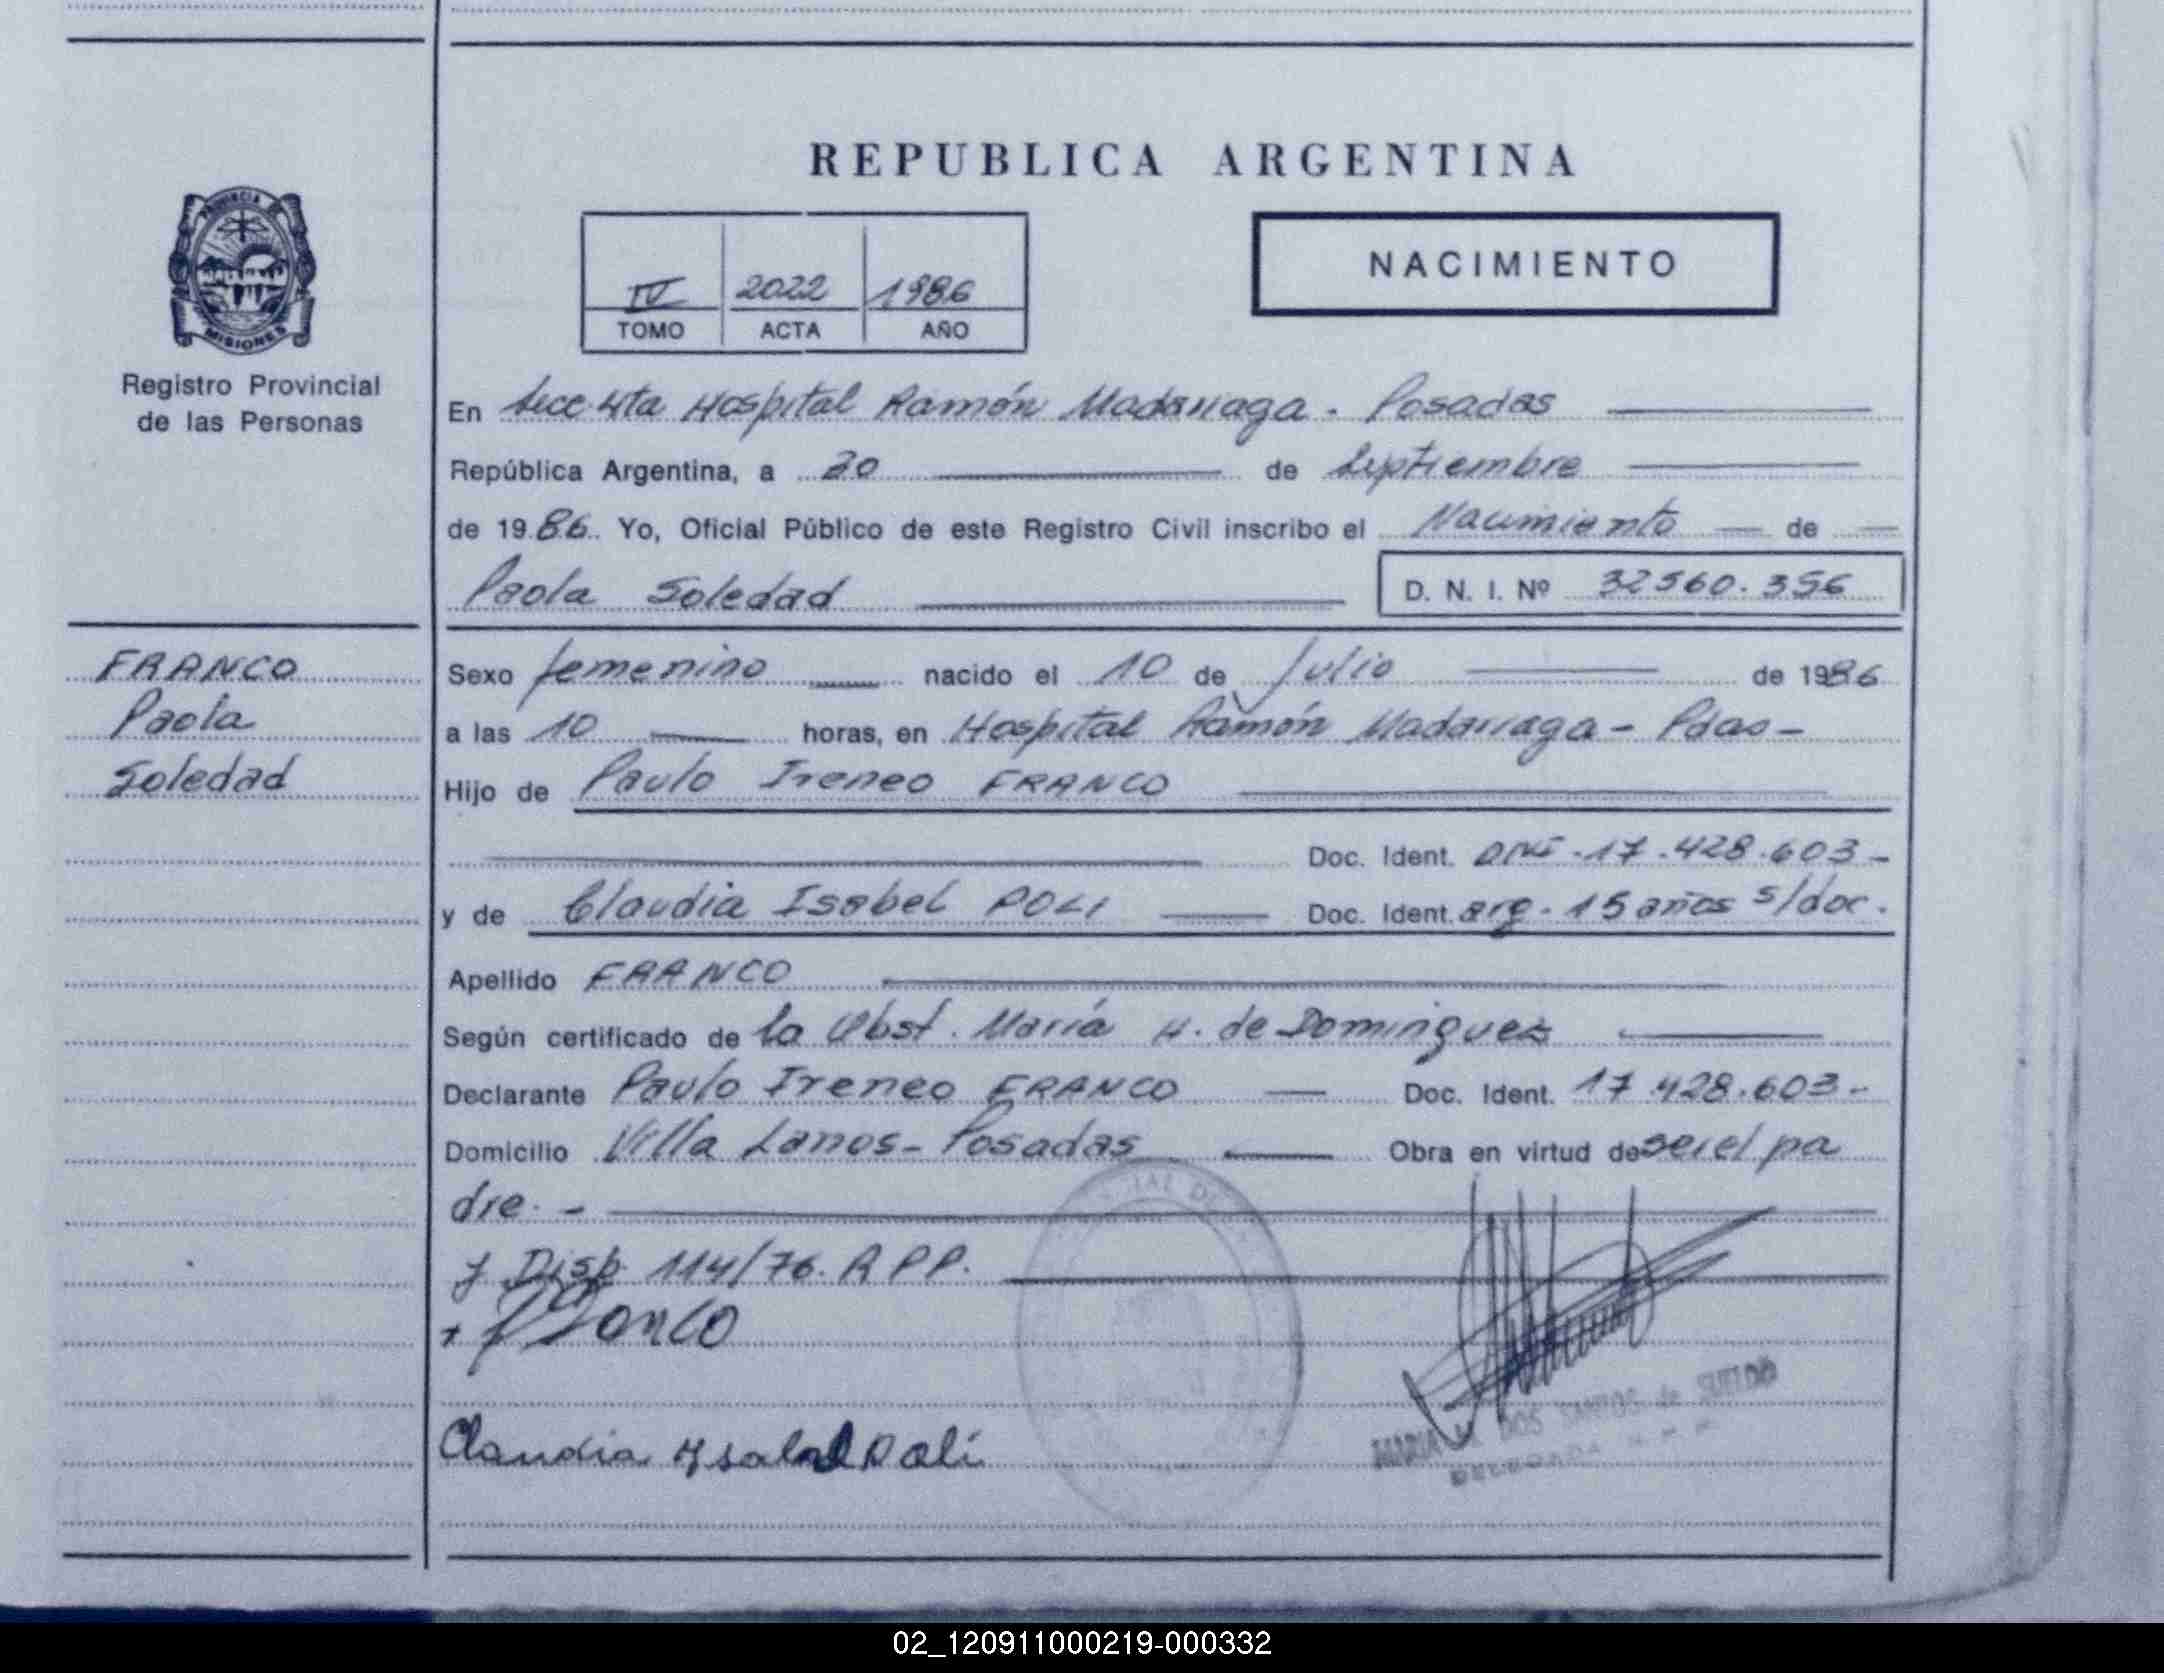 REPUBLICA ARGENTINA
NACIMIENTO
IV 2022 1986
TOMO ACTA AÑO
PROVINCIA DE
MISIONES
Registro Provincial
de las Personas
En Secc 4ta Hospital Ramón Madariaga - Posadas
República Argentina, a 30 de Septiembre
de 1986. Yo, Oficial Público de este Registro Civil inscribo el Nacimiento de
Paola Soledad D. N. I. Nº 32560.356
FRANCO
Paola
Soledad
Sexo femenino nacido el 10 de Julio de 1986
a las 10 horas, en Hospital Ramón Madariaga - Pdas -
Hijo de Paulo Ireneo FRANCO
Doc. Ident. DNI - 17.428.603 -
y de Claudia Isabel POLI Doc. Ident. arg - 15 años s/doc.
Apellido FRANCO
Según certificado de la Obst. María H. de Domingues
Declarante Paulo Ireneo FRANCO Doc. Ident. 17.428.603 -
Domicilio Villa Lanos - Posadas Obra en virtud de ser el pa
dre. -
y Disp. 114/76. R P P.
Franco
Claudia Ysabel Poli
MARIA DOS SANTOS de SUELDO
DELEGADA
02_120911000219-000332